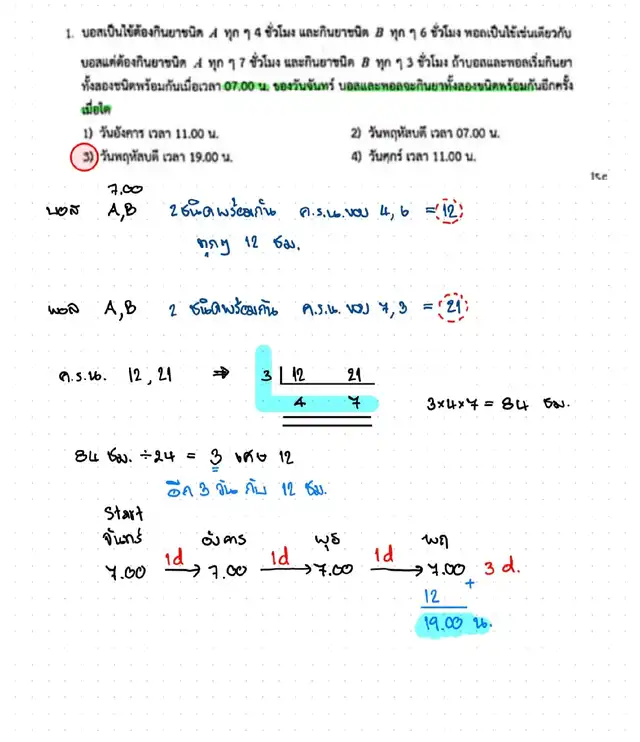 1. บอสเป็นไข้ต้องกินยาชนิด A ทุก ๆ 4 ชั่วโมง และกินยาชนิด B ทุก ๆ 6 ชั่วโมง พอลเป็นไข้เช่นเดียวกับ
บอสแต่ต้องกินยาชนิด A ทุก ๆ 7 ชั่วโมง และกินยาชนิด B ทุก ๆ 3 ชั่วโมง ถ้าบอสและพอลเริ่มกินยา
ทั้งสองชนิดพร้อมกันเมื่อเวลา 07.00 น. ของวันจันทร์ บอสและพอลจะกินยาทั้งสองชนิดพร้อมกันอีกครั้ง
เมื่อใด
1) วันอังคาร เวลา 11.00 น. 2) วันพฤหัสบดี เวลา 07.00 น.
3) วันพฤหัสบดี เวลา 19.00 น. 4) วันศุกร์ เวลา 11.00 น.
7.00
บอส A,B 2 ชนิดพร้อมกัน ค.ร.น. ของ 4, 6 = 12
ทุกๆ 12 ชม.
พอล A,B 2 ชนิดพร้อมกัน ค.ร.น. ของ 7,3 = 21
ค.ร.น. 12 , 21 ⇒ 3 12 21
4 7 3×4×7 = 84 ชม.
84 ชม. ÷24 = 3 เศษ 12
อีก 3 วัน กับ 12 ชม.
Start
จันทร์ อังคาร พุธ พฤ
7.00 1d → 7.00 1d → 7.00 1d → 7.00 3 d.
12 +
19.00 น.